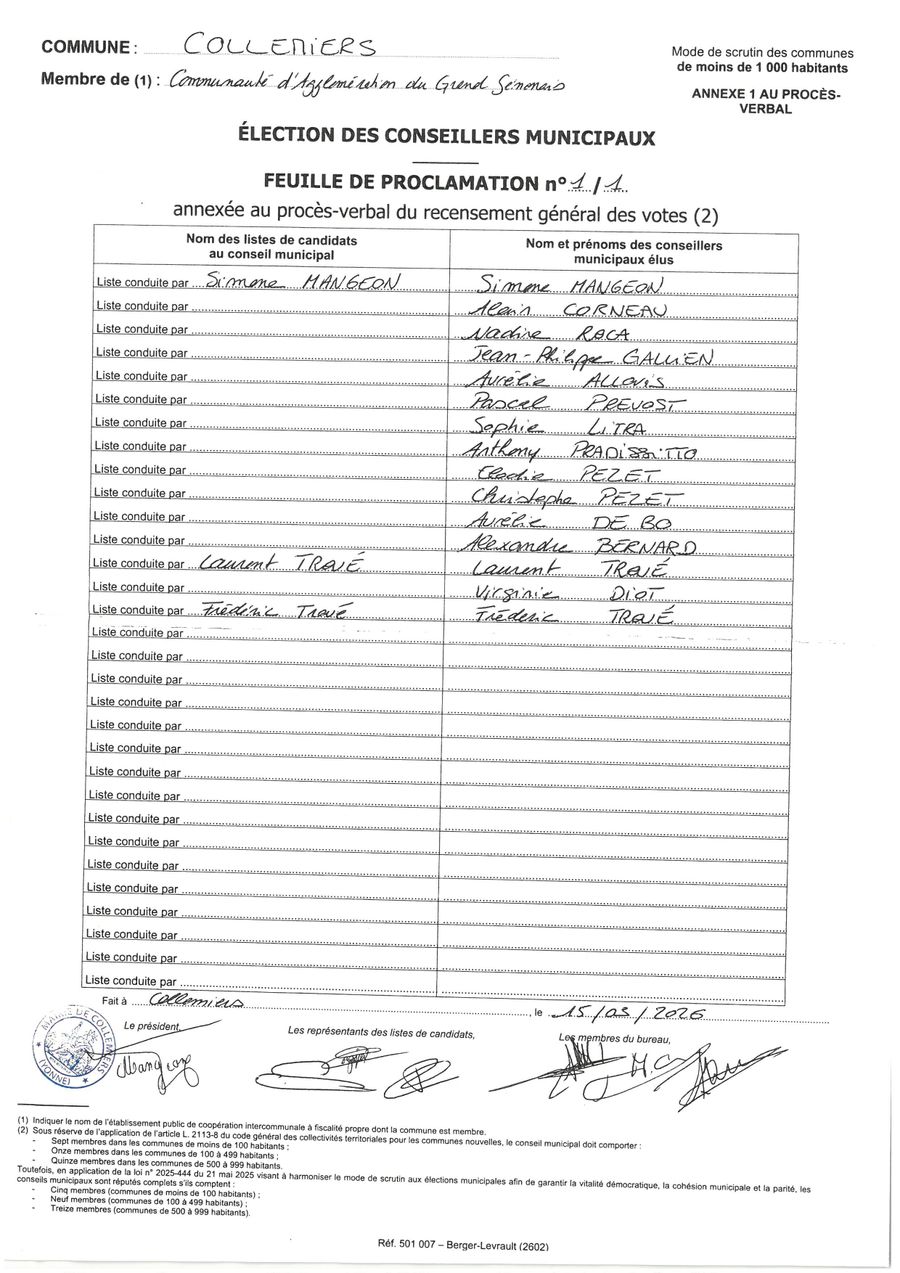 COMMUNE : COLLEMIERS
Mode de scrutin des communes
de moins de 1 000 habitants
Membre de (1) : Communauté d'Agglomération du Grend Sénonais
ANNEXE 1 AU PROCÈS-
VERBAL
ÉLECTION DES CONSEILLERS MUNICIPAUX
FEUILLE DE PROCLAMATION n° 1 / 1
annexée au procès-verbal du recensement général des votes (2)
Nom des listes de candidats
au conseil municipal
Nom et prénoms des conseillers
municipaux élus
Liste conduite par Simone MANGEON Simone MANGEON
Liste conduite par Alain CORNEAU
Liste conduite par Nadine ROCA
Liste conduite par Jean-Philippe GALLIEN
Liste conduite par Aurélie ALLOVIS
Liste conduite par Pascal PREVOST
Liste conduite par Sophie LITRA
Liste conduite par Anthony PRADISSITTO
Liste conduite par Elodie PEZET
Liste conduite par Christophe PEZET
Liste conduite par Aurélie DE BO
Liste conduite par Alexandre BERNARD
Liste conduite par Laurent TROUÉ Laurent TROUÉ
Liste conduite par Virginie DIOT
Liste conduite par Frédéric TROUÉ Frédéric TROUÉ
Liste conduite par
Liste conduite par
Liste conduite par
Liste conduite par
Liste conduite par
Liste conduite par
Liste conduite par
Liste conduite par
Liste conduite par
Liste conduite par
Liste conduite par
Liste conduite par
Liste conduite par
Liste conduite par
Liste conduite par
Liste conduite par
Fait à Collemiers, le 15/03/2026
MAIRIE DE COLLEMIERS
(YONNE)
Le président,
Les représentants des listes de candidats,
Les membres du bureau,
(1) Indiquer le nom de l'établissement public de coopération intercommunale à fiscalité propre dont la commune est membre.
(2) Sous réserve de l'application de l'article L. 2113-8 du code général des collectivités territoriales pour les communes nouvelles, le conseil municipal doit comporter :
- Sept membres dans les communes de moins de 100 habitants ;
- Onze membres dans les communes de 100 à 499 habitants ;
- Quinze membres dans les communes de 500 à 999 habitants.
Toutefois, en application de la loi n° 2025-444 du 21 mai 2025 visant à harmoniser le mode de scrutin aux élections municipales afin de garantir la vitalité démocratique, la cohésion municipale et la parité, les
conseils municipaux sont réputés complets s'ils comptent :
- Cinq membres (communes de moins de 100 habitants) ;
- Neuf membres (communes de 100 à 499 habitants) ;
- Treize membres (communes de 500 à 999 habitants).
Réf. 501 007 – Berger-Levrault (2602)